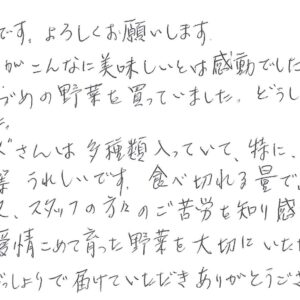 です。よろしくお願いします。
がこんなに美味しいとは感動でした
づめの野菜を買っていました。どうし
た。
ズさんは多種類入っていて、特に、
等うれしいです。食べ切れる量で
又、スタッフの方々のご苦労を知り感
愛情こめて育った野菜を大切にいただ
どっしょりで届けていただきありがとうござ